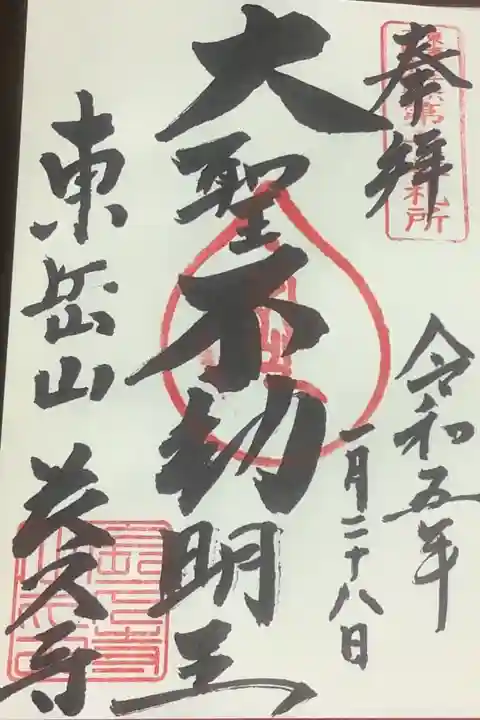 奉拜
第 札所
令和五年
一月二十八日
大聖不動明王
東岳山 長久寺